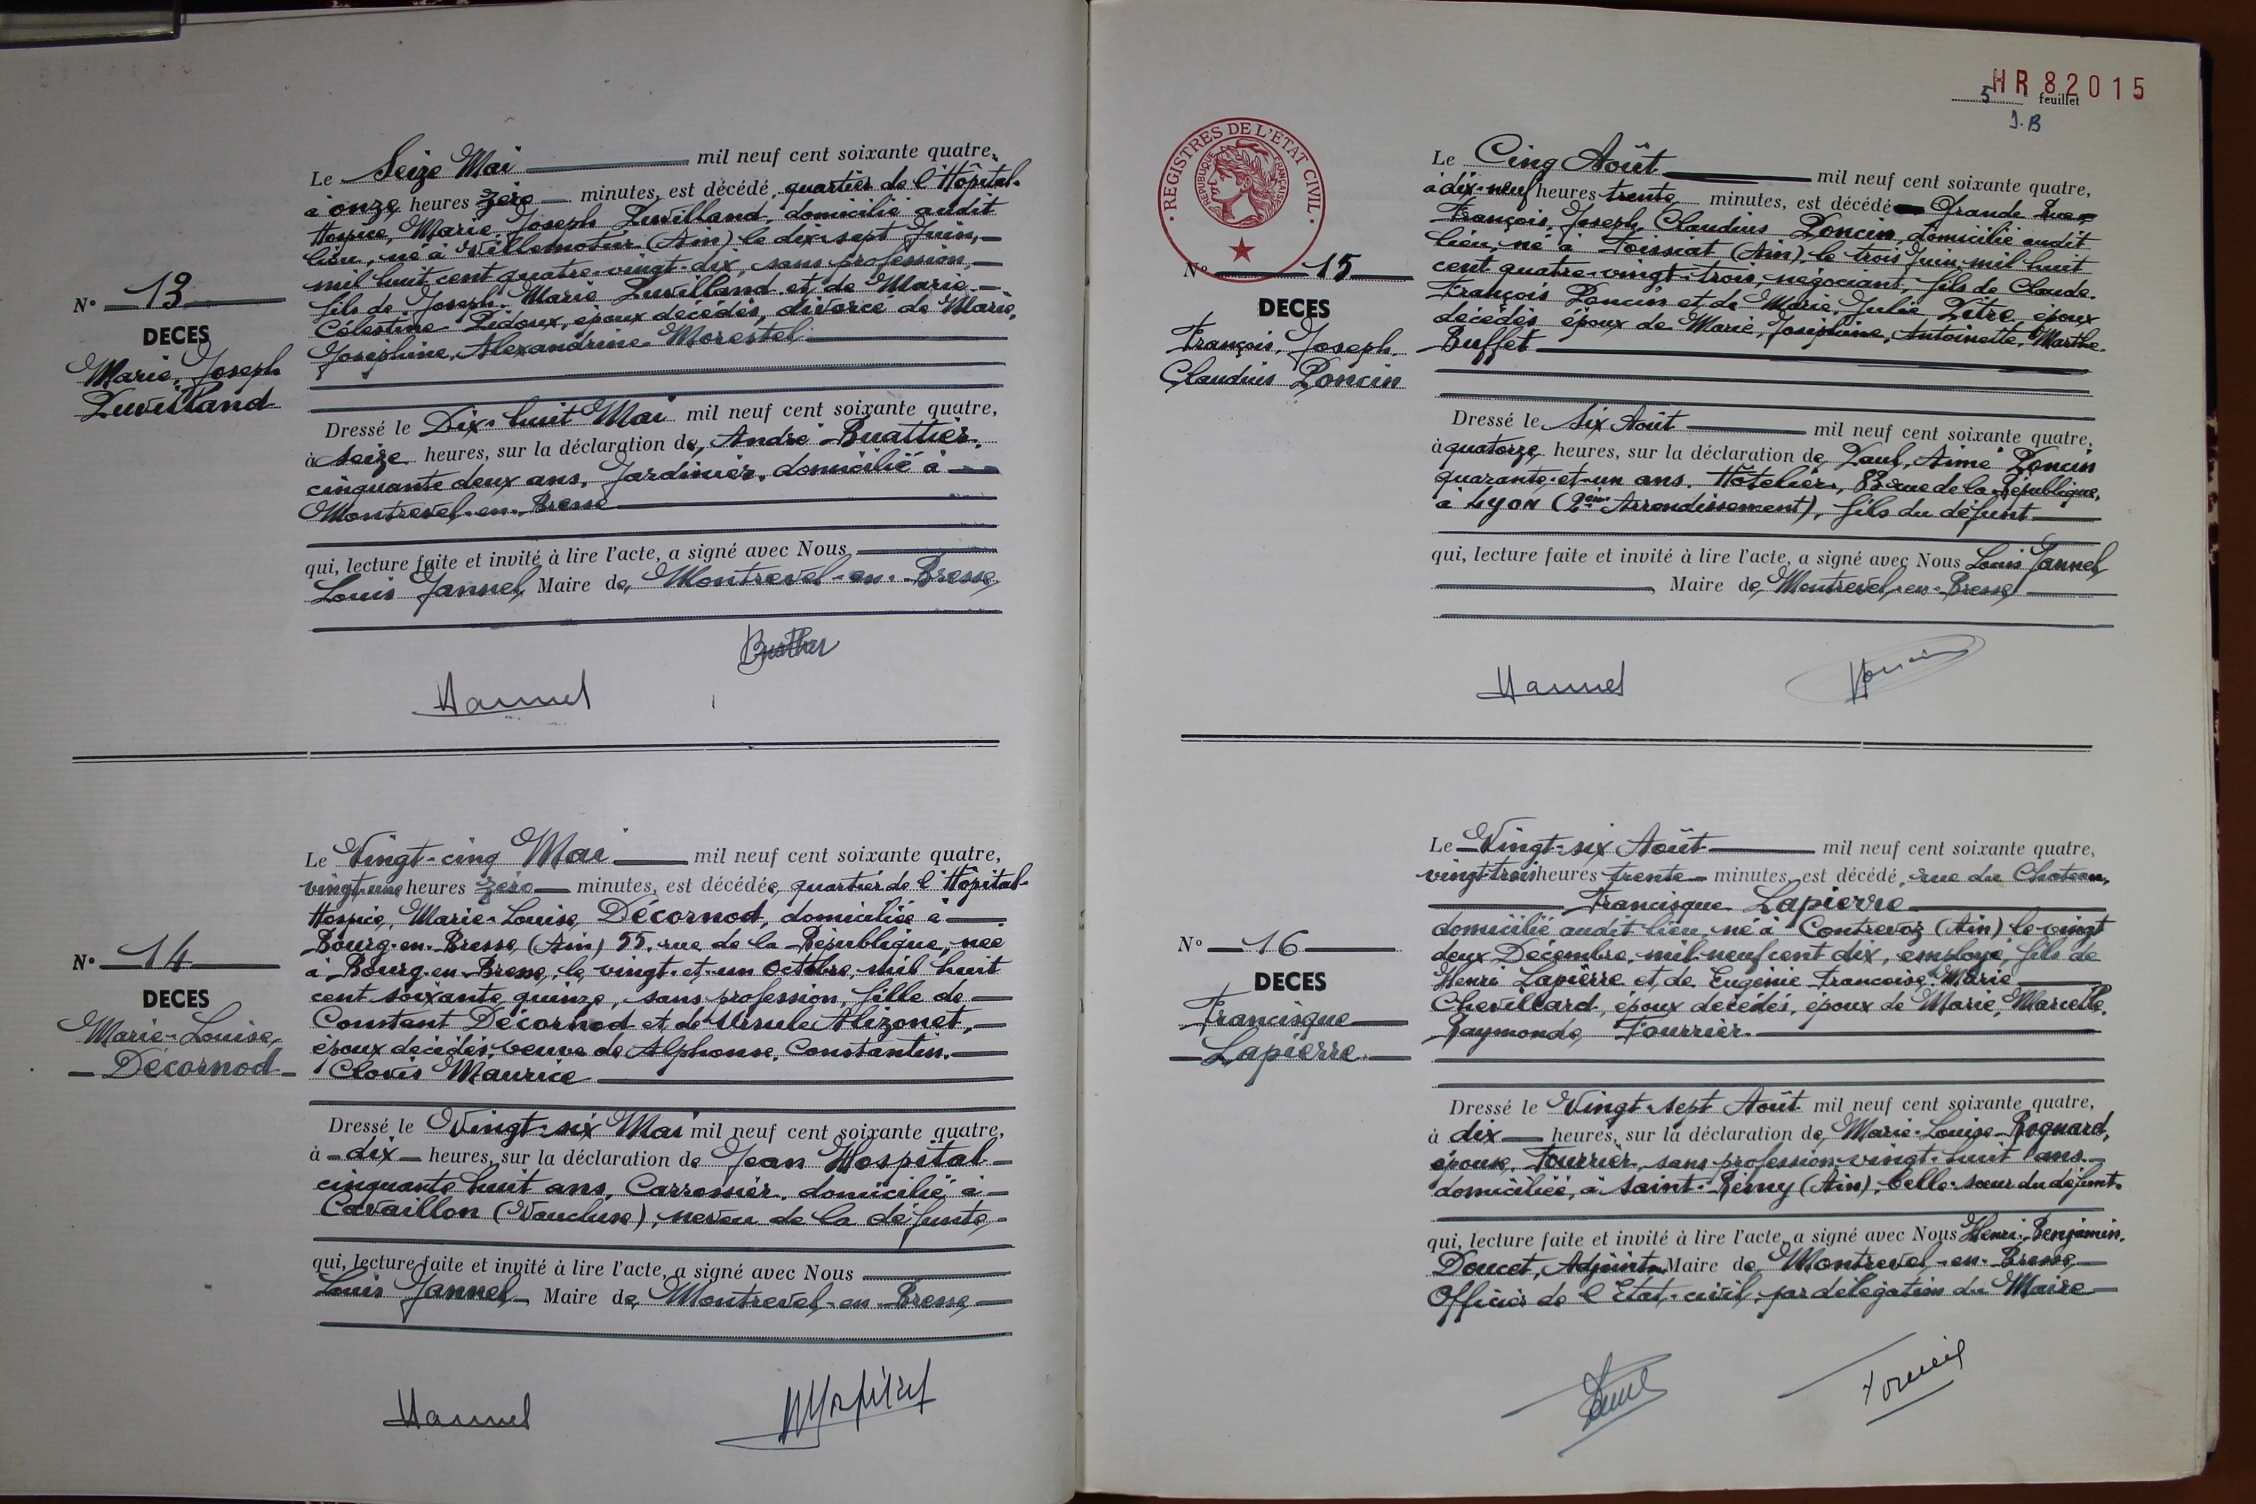 Le Seize Mai mil neuf cent soixante quatre,
à onze heures zéro minutes, est décédé, quartier de l'Hôpital-
Hospice, Marie, Joseph Luvilland, domicilié audit
lieu, né à Villemotier (Ain) le dix-sept Juin,
mil huit cent quatre-vingt-dix, sans profession,
fils de Joseph-Marie Luvilland et de Marie-
Célestine Pidoux, époux décédés, divorcé de Marie,
Joséphine, Alexandrine Morestel
N° 13
DECES
Marie, Joseph
Luvilland
Dressé le Dix-huit Mai mil neuf cent soixante quatre,
à seize heures, sur la déclaration de, André Buattier,
cinquante deux ans, Jardinier, domicilié à
Montrevel-en-Bresse
qui, lecture faite et invité à lire l'acte, a signé avec Nous
Louis Jannel, Maire de, Montrevel-en-Bresse
Jannel
Le Vingt-cinq Mai mil neuf cent soixante quatre,
vingt-une heures zéro minutes, est décédée, quartier de l'Hôpital-
Hospice, Marie-Louise, Décornod, domiciliée à
Bourg-en-Bresse, (Ain) 55, rue de la République, née
à Bourg-en-Bresse, le vingt-et-un octobre, mil huit
cent soixante quinze, sans profession, fille de
Constant Décornod et de Ursule Alizonet,
époux décédés, veuve de Alphonse, Constantin,
Clovis Maurice
N° 14
DECES
Marie-Louise,
Décornod
Dressé le Vingt-six Mai mil neuf cent soixante quatre,
à dix heures, sur la déclaration de Jean Hospital
cinquante huit ans, Carrossier, domicilié à
Cavaillon (Vaucluse), neveu de la défunte
qui, lecture faite et invité à lire l'acte, a signé avec Nous
Louis Jannel, Maire de, Montrevel-en-Bresse
Jannel
HR 82015
5 feuillet
J.B
REGISTRES DE L'ETAT CIVIL
REPUBLIQUE FRANÇAISE
Le Cinq Août mil neuf cent soixante quatre,
à dix-neuf heures trente minutes, est décédé Grande Rue
François, Joseph, Claudius Poncin, domicilié audit
lieu, né à Foissiat (Ain), le trois Juin mil huit
cent quatre-vingt-trois, négociant, fils de Claude-
François Poncin et de Marie, Julie, Pitre, époux
décédés, époux de Marie, Joséphine, Antoinette, Marthe
Buffet
N° 15
DECES
François, Joseph,
Claudius Poncin
Dressé le Six Août mil neuf cent soixante quatre,
à quatorze heures, sur la déclaration de, Paul, Aimé Poncin
quarante-et-un ans, Hôtelier, 83 rue de la République,
à Lyon (2ème Arrondissement), fils du défunt
qui, lecture faite et invité à lire l'acte, a signé avec Nous Louis Jannel,
Maire de, Montrevel-en-Bresse
Jannel
Le Vingt-six Août mil neuf cent soixante quatre,
vingt-trois heures trente minutes, est décédé, rue du Chateau,
Francisque Lapierre
domicilié audit lieu, né à Contrevoz (Ain) le vingt
deux Décembre, mil-neuf cent dix, employé, fils de
Henri Lapierre et de, Eugénie Francoise Marie
Chevillard, époux décédés, époux de Marie, Marcelle,
Raymonde, Fourrier.
N° 16
DECES
Francisque
Lapierre.
Dressé le Vingt-sept Août mil neuf cent soixante quatre,
à dix heures, sur la déclaration de, Marie-Louise Rognard,
épouse, Fourrier, sans profession, vingt-huit ans
domiciliée, à Saint-Rémy (Ain), belle-sœur du défunt.
qui, lecture faite et invité à lire l'acte, a signé avec Nous Henri-Benjamin
Doucet, Adjoint Maire de Montrevel-en-Bresse,
Officier de l'Etat-civil, par délégation du Maire